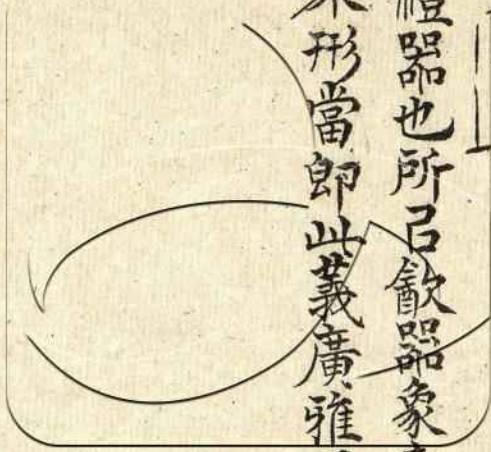 禮器也所㠯歙器象
形當即此義廣雅